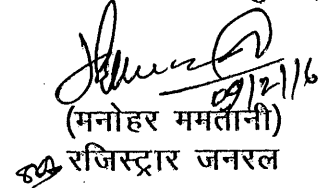 09/2/16
(मनोहर ममतानी)
रजिस्ट्रार जनरल